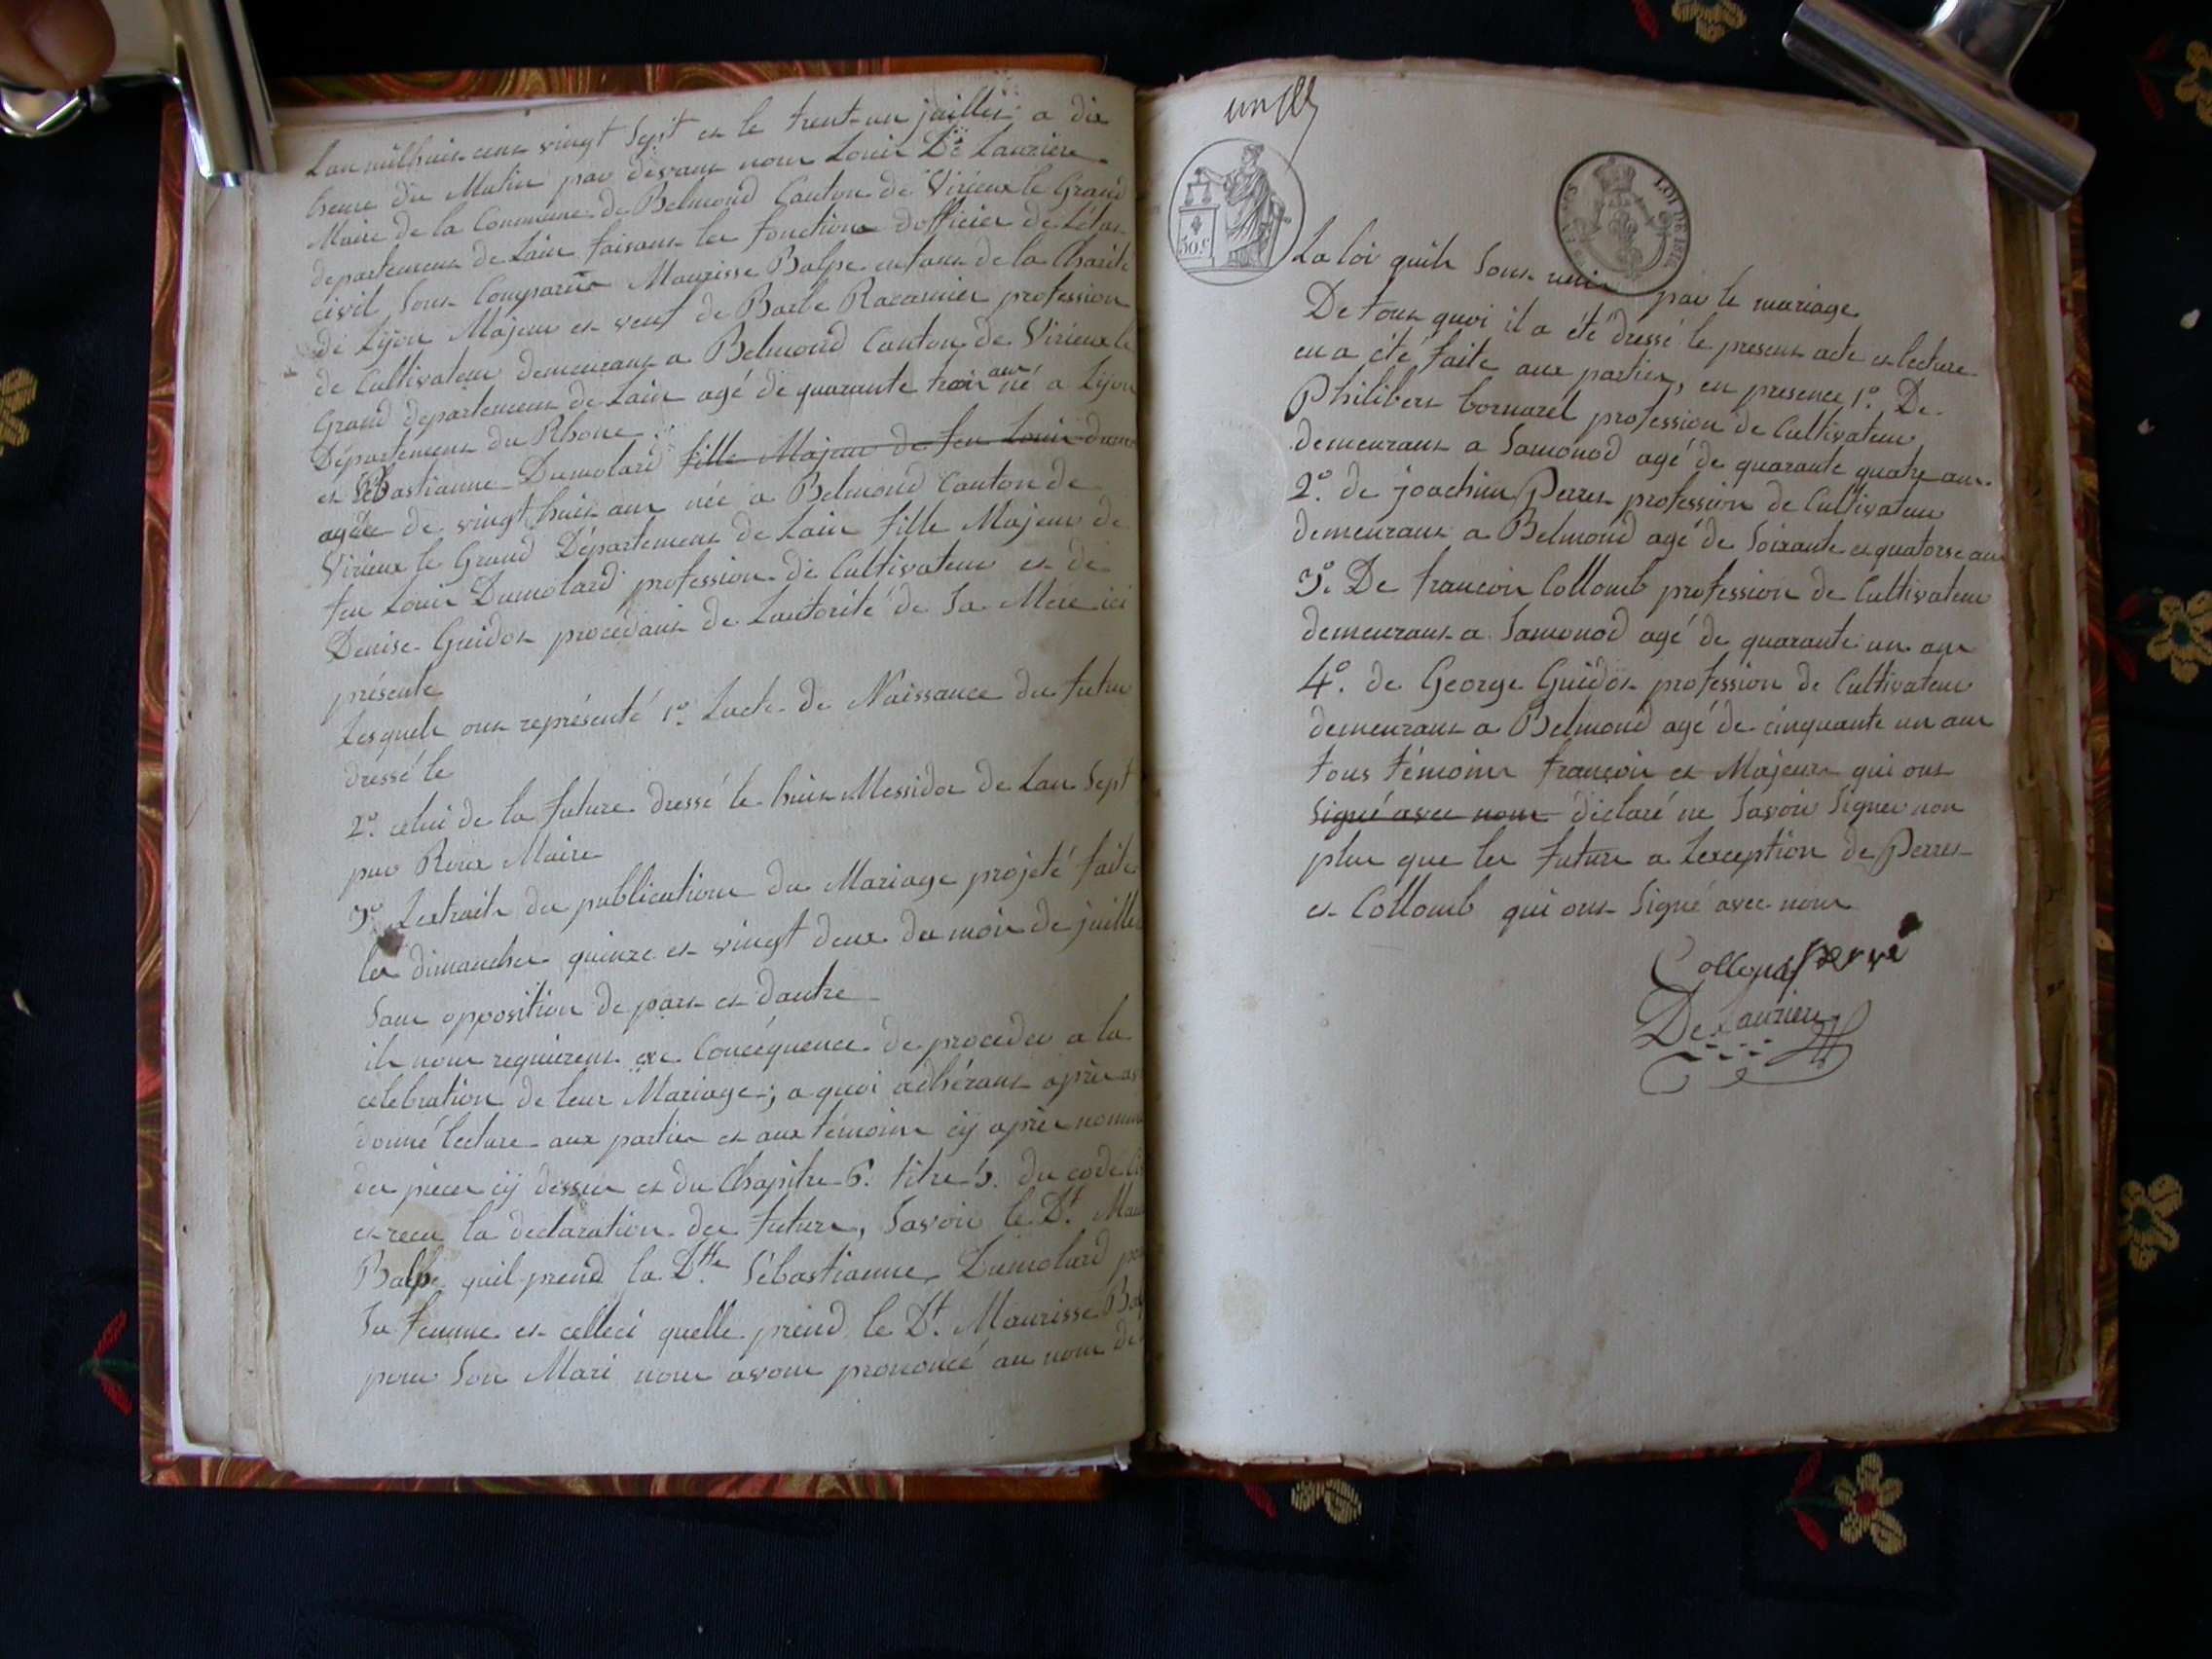 Lan milhuit cent vingt Sept et le trent un juillet a dix
heure du Matin par devant nous Louis De Lauzière
Maire de la Commune de Belmond Canton de Virieux le Grand
departement de Lain faisant les fonctions dofficier de Létat
civil Sont Comparus Maurisse Balpe enfant de la Charité
de Lijon Majeur et veuf de Barbe Racamier profession
de Cultivateur demeurant a Belmond Canton de Virieux le
Grand departement de Lain agé de quarante trois ans né a Lijon
Département du Rhone
et Sébastianne Dumolard fille Majeur de feu Louis dumo
agée de vingt huit ans née a Belmond Canton de
Virieux le Grand Département de Lain fille Majeur de
feu Louis Dumolard profession de Cultivateur et de
Denise Guidot procédant de Lautorité de Sa Mère ici
présente
Lesquels ont représenté 1º. Lacte de Naissance du futur
dressé le
2º. celui de la future dressé le huit Messidor de Lan Sept
par Roux Maire
3º Lextraits des publications du Mariage projeté faites
les dimanches quinze et vingt deux du mois de juillet
Sans opposition de part et dautre
ils nous requierent en Concéquence de proceder a la
celebration de leur Mariage; a quoi adhérant après av
donné lecture aux parties et aux témoins cÿ après nommé
des pieces cÿ dessus et du Chapitre 6. titre 5. du code Ci
et recu la declaration des futurs, Savoir le Dt. Mau
Balpe quil prend la Dtte Sébastianne Dumolard po
Sa femme et celleci quelle prend le Dt. Maurisse Bal
pour Son Mari nous avons prononcé au nom de
50 c.
LOI DE 1816
La loi quils Sont unis par le mariage
De tout quoi il a été dressé le present acte et lecture
en a été faite aux parties, en presence 1º. De
Philibert bornarel profession de Cultivateur
demeurant a Samonod agé de quarante quatre ans
2º. de joachim Perret profession de Cultivateur
demeurant a Belmond agé de Soixante et quatorse ans
3º. De francois Collomb profession de Cultivateur
demeurant a Samonod agé de quarante un ans
4º. de George Guidot profession de Cultivateur
demeurant a Belmond agé de cinquante un ans
tous témoins françois et Majeurs qui ont
Signé avec nous déclaré ne Savoir Signer non
plus que les futurs a lexception de Perret
et Collomb qui ont Signé avec nous
Collomb
De Lauziere